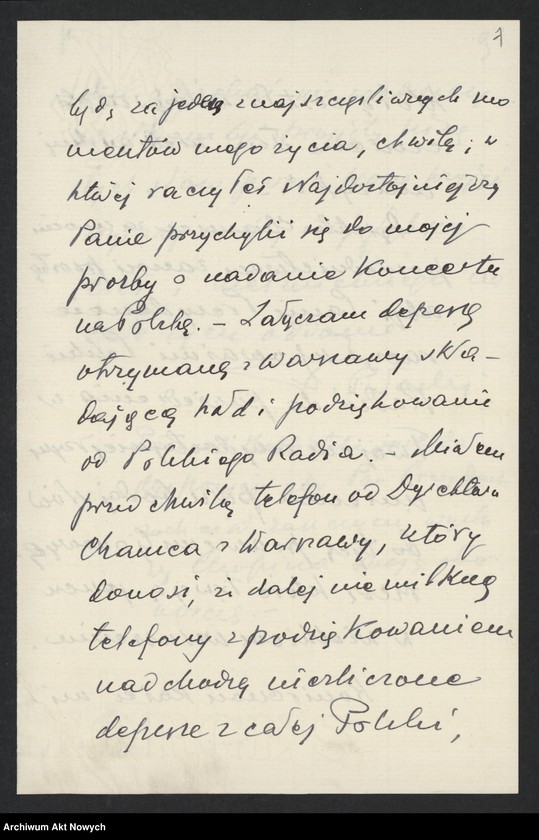 7
będę za jeden z najszczęśliwszych mo
mentów mego życia, chwilę, w
której raczyłeś Najdostojniejszy
Panie przychylić się do mojej
prośby o nadanie Koncertu
na Polskę. – Załączam depeszę
otrzymaną z Warszawy skła –
dającą hołd i podziękowanie
od Polskiego Radia. – Miałem
przed chwilą telefon od Dyrektora
Chamca z Warszawy, który
donosi, że dalej nie milkną
telefony z podziękowaniem
nadchodzą niezliczone
depesze z całej Polski,
Archiwum Akt Nowych